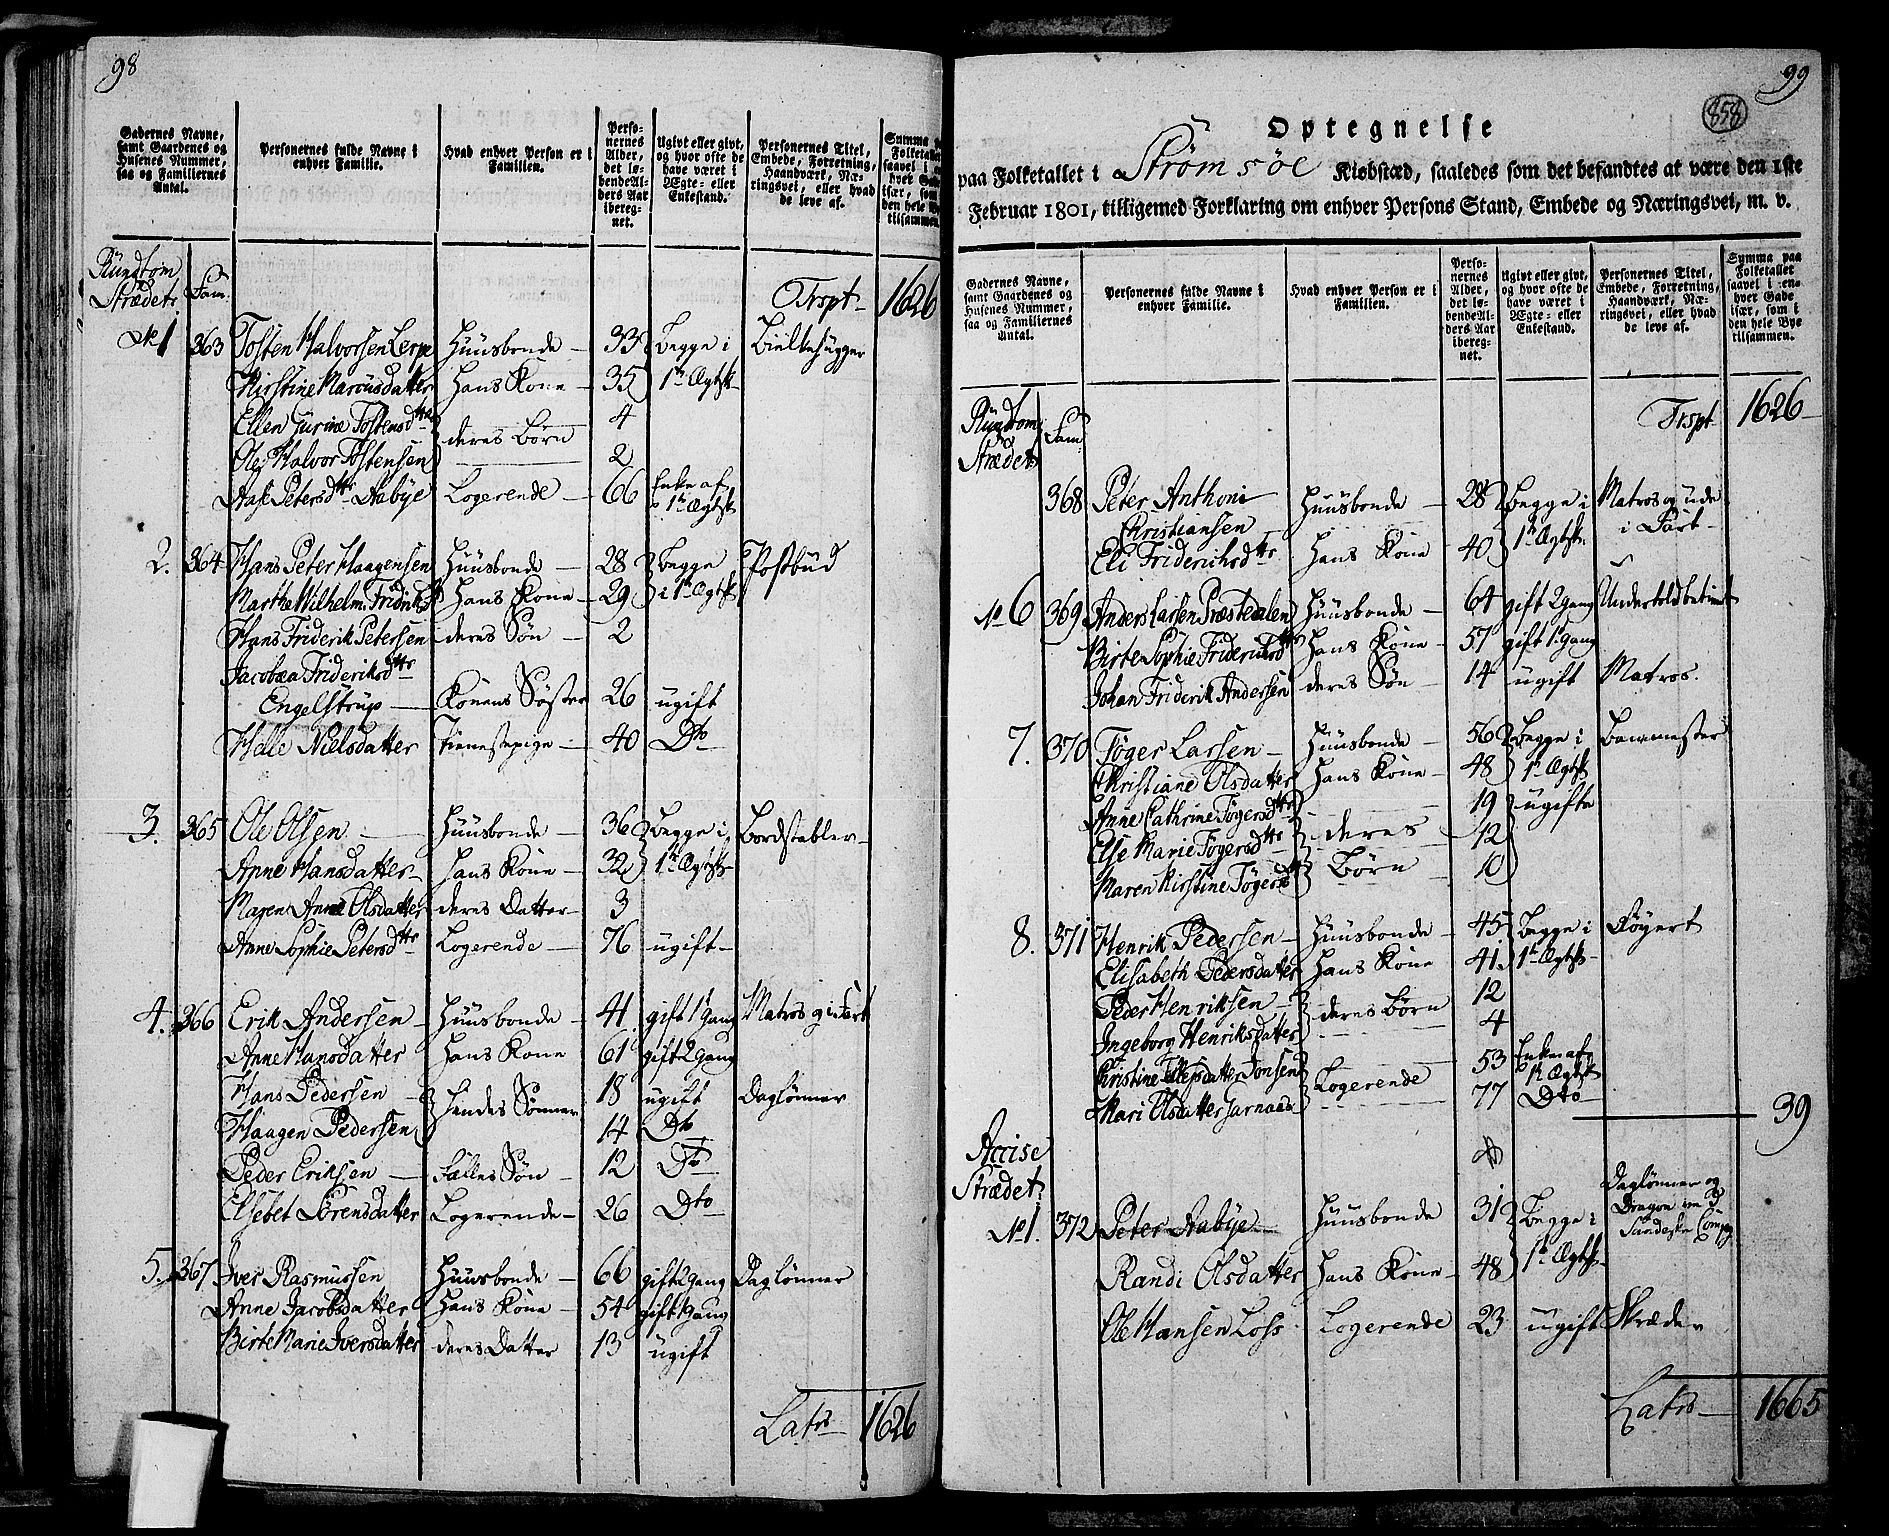 98
Gadernes Navne, samt Gaardenes og Husenes Nummer, saa og Familiernes Antal.
Personernes fulde Navne i enhver Familie.
Hvad enhver Person er i Familien.
Personernes Alder, det løbende Alders Aar iberegnet.
Ugivt eller givt, og hvor ofte de have været i Ægte- eller Enkestand.
Personernes Titel, Embede, Forretning, Haandværk, Næringsvei, eller hvad de leve af.
Rundtom Strædet. Fam. Trspt 1626
No 1 363 Tosten Halvorsen Huusbonde 33 Begge i Bielkehugger
Kirstine Marcusdatter Hans Kone 35 1te Ægtsk
Ellen Gurine Tostensdtr 4
deres Børn
Ole Halvor Tostensen 2
Aase Petersdtr Aabye Logerende 66 Enke af 1te Ægtsk
2. 364 Hans Peter Haagensen Huusbonde 28 Begge Postbud
Marthe Wilhelm. Fridriksd Hans Kone 29 i 1te Ægtsk
Hans Friderik Petersen deres Søn 2
Jacobæa Frideriksdtr
Engelstrup Konens Søster 26 ugift
Helle Nielsdatter Tienestepige 40 Dto
3. 365 Ole Olsen Huusbonde 36 Begge i Bordstabler
Anne Hansdatter Hans Kone 32 1te Ægtsk
Maren Anne Olsdatter deres Datter 3
Anne Sophie Petersdtr Logerende 76 ugift
4. 366 Erik Andersen Huusbonde 41. gift 1 gang Matros og i Fart
Anne Hansdatter Hans Kone 61 gift 2 gang
Hans Pedersen 18 ugift Daglönner
hendes Sønner
Haagen Pedersen 14 Dto
Peder Eriksen Fælles Søn 12 Do
Elsebet Sørensdatter Logerende 26 Dto
5. 367 Iver Rasmussen Huusbonde 66 gift 2 gang Daglönner
Anne Jacobsdatter Hans Kone 54 gift 1 gang
Birte Marie Iversdatter deres Datter 13 ugift
Latrs 1626
99
858
Optegnelse
paa Folketallet i Strømsöe Kiøbstæd, saaledes som det befandtes at være den 1ste
Februar 1801, tilligemed Forklaring om enhver Persons Stand, Embede og Næringsvei, m. v.
Gadernes Navne, samt Gaardenes og Husenes Nummer, saa og Familiernes Antal.
Personernes fulde Navne i enhver Familie.
Hvad enhver Person er i Familien.
Personernes Alder, det løbende Alders Aar iberegnet.
Ugivt eller givt, og hvor ofte de have været i Ægte- eller Enkestand.
Personernes Titel, Embede, Forretning, Haandværk, Næringsvei, eller hvad de leve af.
Summa paa Folketallet saavel i enhver Gade især, som i den hele Bye tilsammen.
Rundtom Strædet Fam Trspt 1626
368 Peter Anthoni Huusbonde 28 Begge i Matros og ude
Christiansen 1te Ægtsk. i Fart
Eli Friderichsdtr Hans Kone 40
No 6 369 Anders Larsen Præstedalen Huusbonde 64 gift 2 gang
Birte Sophie Friderichsdtr Hans Kone 57 gift 1 gang
Johan Friderik Andersen deres Søn 14 ugift Matros.
7. 370 Tøger Larsen Huusbonde 56 Begge i
Christiane Olsdatter Hans Kone 48 1te Ægtsk
Anne Cathrine Tøgersdtr 19 ugifte
Else Marie Tøgersdtr deres 12
Maren Kirstine Tøgersd Børn 10
8. 371 Henrik Pedersen Huusbonde 45 Begge i
Elisabeth Pedersdatter Hans Kone 41. 1te Ægtsk
Peder Henriksen 12
deres Børn
Ingeborg Henriksdatter 4
Christine Jonsen 53 Enke af 1te Ægtsk
Logerende
Mari Olsdatter 77 Dto
39
Accise Strædet.
No 1. 372 Peter Aabye Huusbonde 31 Begge i Daglönner og Dragon
Randi Olsdatter Hans Kone 48 1te Ægtsk
Ole Hansen Loss Logerende 23 ugift Skræder
Latrs 1665